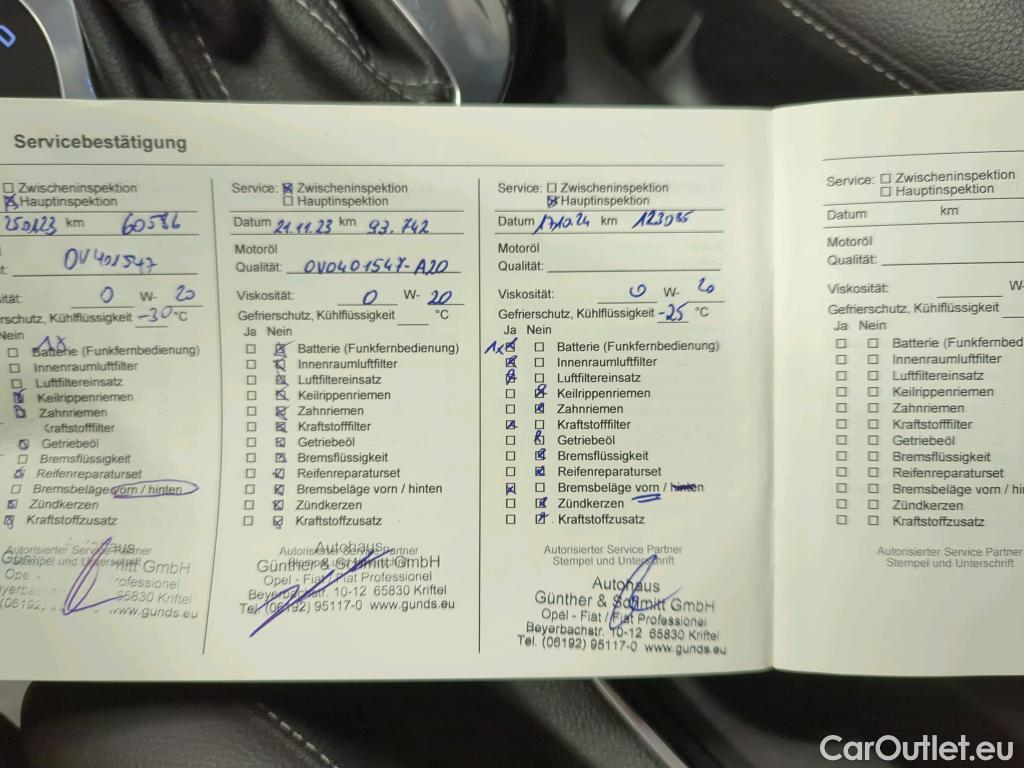 Servicebestätigung
Zwischeninspektion
Hauptinspektion
250123 km 60586
OV401547
0 W- 20
Gefrierschutz, Kühlflüssigkeit -30 °C
Nein
1x
Batterie (Funkfernbedienung)
Innenraumluftfilter
Luftfiltereinsatz
Keilrippenriemen
Zahnriemen
Kraftstofffilter
Getriebeöl
Bremsflüssigkeit
Reifenreparaturset
Bremsbeläge vorn / hinten
Zündkerzen
Kraftstoffzusatz
Autorisierter Service Partner
Stempel und Unterschrift
GmbH
Professionel
65830 Kriftel
www.gunds.eu
Service: Zwischeninspektion
Hauptinspektion
Datum 21.11.23 km 93.742
Motoröl
Qualität: OVO401547-A20
Viskosität: 0 W- 20
Gefrierschutz, Kühlflüssigkeit °C
Ja Nein
Batterie (Funkfernbedienung)
Innenraumluftfilter
Luftfiltereinsatz
Keilrippenriemen
Zahnriemen
Kraftstofffilter
Getriebeöl
Bremsflüssigkeit
Reifenreparaturset
Bremsbeläge vorn / hinten
Zündkerzen
Kraftstoffzusatz
Autorisierter Service Partner
Autohaus
Günther & Schmitt GmbH
Opel - Fiat / Fiat Professionel
Beyerbachstr. 10-12 65830 Kriftel
Tel. (06192) 95117-0 www.gunds.eu
Service: Zwischeninspektion
Hauptinspektion
Datum 17.10.24 km 123085
Motoröl
Qualität:
Viskosität: 0 W- 20
Gefrierschutz, Kühlflüssigkeit -25 °C
Ja Nein
1x Batterie (Funkfernbedienung)
Innenraumluftfilter
Luftfiltereinsatz
Keilrippenriemen
Zahnriemen
Kraftstofffilter
Getriebeöl
Bremsflüssigkeit
Reifenreparaturset
Bremsbeläge vorn / hinten
Zündkerzen
Kraftstoffzusatz
Autorisierter Service Partner
Stempel und Unterschrift
Autohaus
Günther & Schmitt GmbH
Opel - Fiat / Fiat Professionel
Beyerbachstr. 10-12 65830 Kriftel
Tel. (06192) 95117-0 www.gunds.eu
Service: Zwischeninspektion
Hauptinspektion
Datum km
Motoröl
Qualität:
Viskosität: W-
Gefrierschutz, Kühlflüssigkeit
Ja Nein
Batterie (Funkfernbed
Innenraumluftfilter
Luftfiltereinsatz
Keilrippenriemen
Zahnriemen
Kraftstofffilter
Getriebeöl
Bremsflüssigkeit
Reifenreparaturset
Bremsbeläge vorn / hin
Zündkerzen
Kraftstoffzusatz
Autorisierter Service Partner
Stempel und Unterschrift
CarOutlet.eu